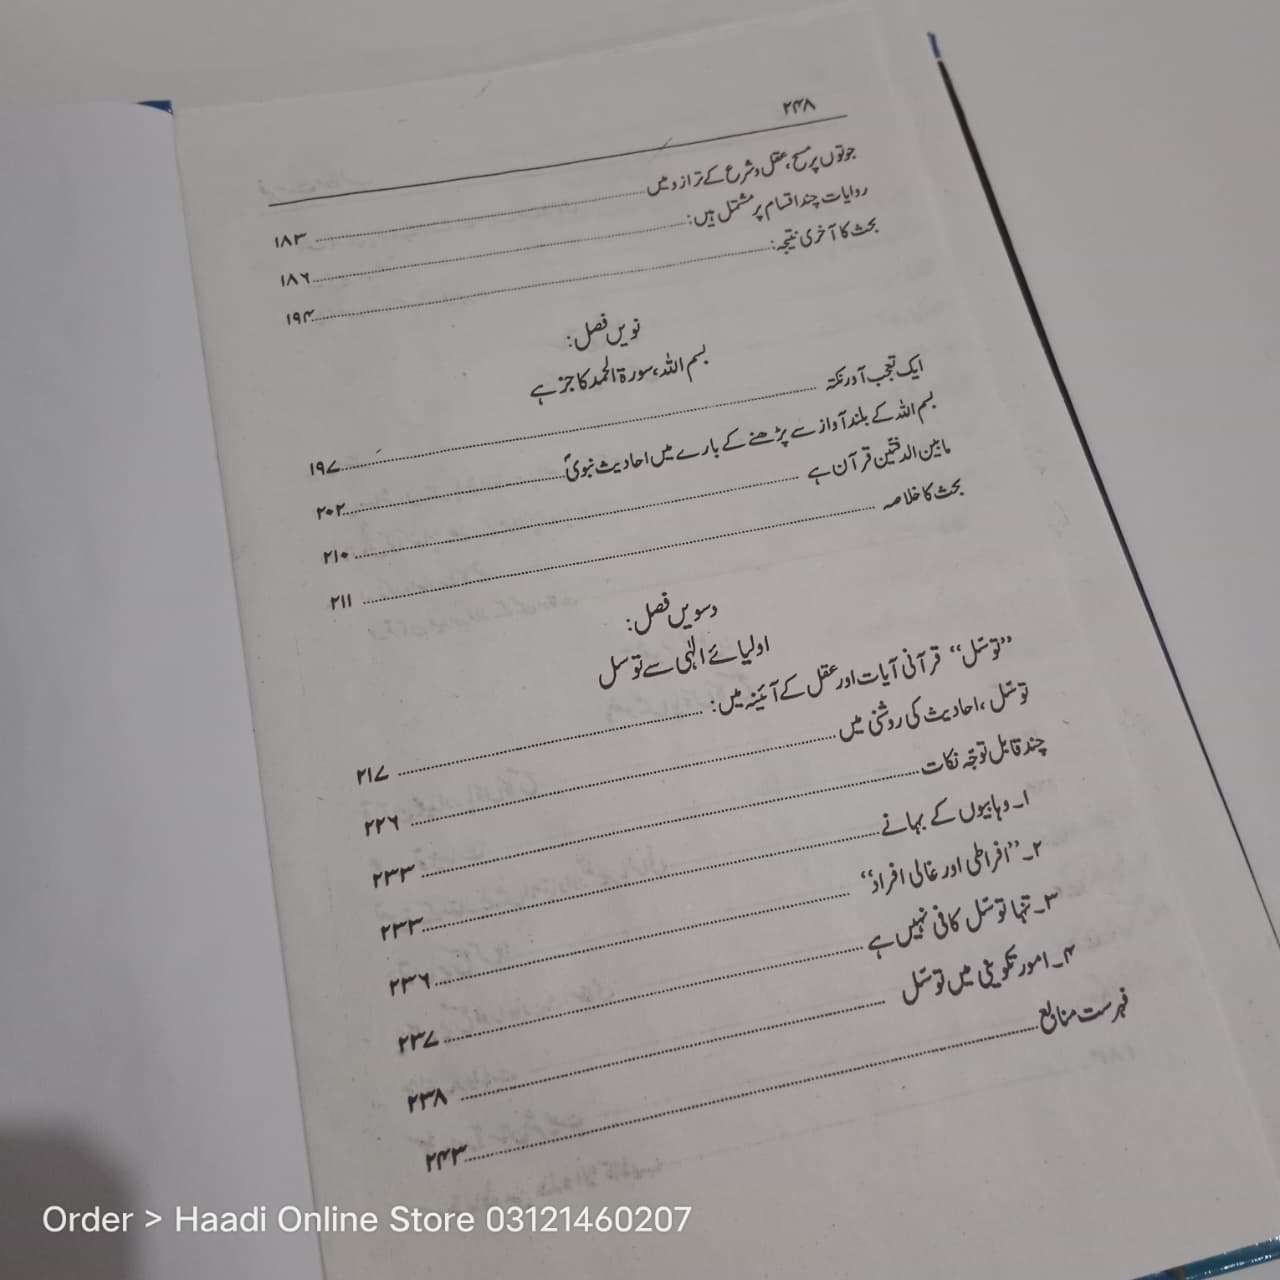 ۲۴۸
جوتوں پر مسح، عقل و شرع کے ترازو میں ........ ۱۸۳
روایات چند اقسام پر مشتمل ہیں: ........ ۱۸۶
بحث کا آخری نتیجہ: ........ ۱۹۴
نویں فصل:
بسم اللہ، سورۃ الحمد کا جز ہے
ایک تعجب آور نکتہ ........ ۱۹۷
بسم اللہ کے بلند آواز سے پڑھنے کے بارے میں احادیث نبویؐ ........ ۲۰۲
ما بین الدفتین قرآن ہے ........ ۲۱۰
بحث کا خلاصہ ........ ۲۱۱
دسویں فصل:
اولیائے الٰہی سے توسل
”توسّل“ قرآنی آیات اور عقل کے آئینہ میں: ........ ۲۱۷
توسّل، احادیث کی روشنی میں ........ ۲۲۶
چند قابل توجّہ نکات ........ ۲۳۳
۱۔ وہابیوں کے بہانے ........ ۲۳۳
۲۔ ”افراطی اور غالی افراد“ ........ ۲۳۶
۳۔ تنہا توسّل کافی نہیں ہے ........ ۲۳۷
۴۔ امور تکوینی میں توسّل ........ ۲۳۸
فہرست منابع ........ ۲۴۳
Order > Haadi Online Store 03121460207